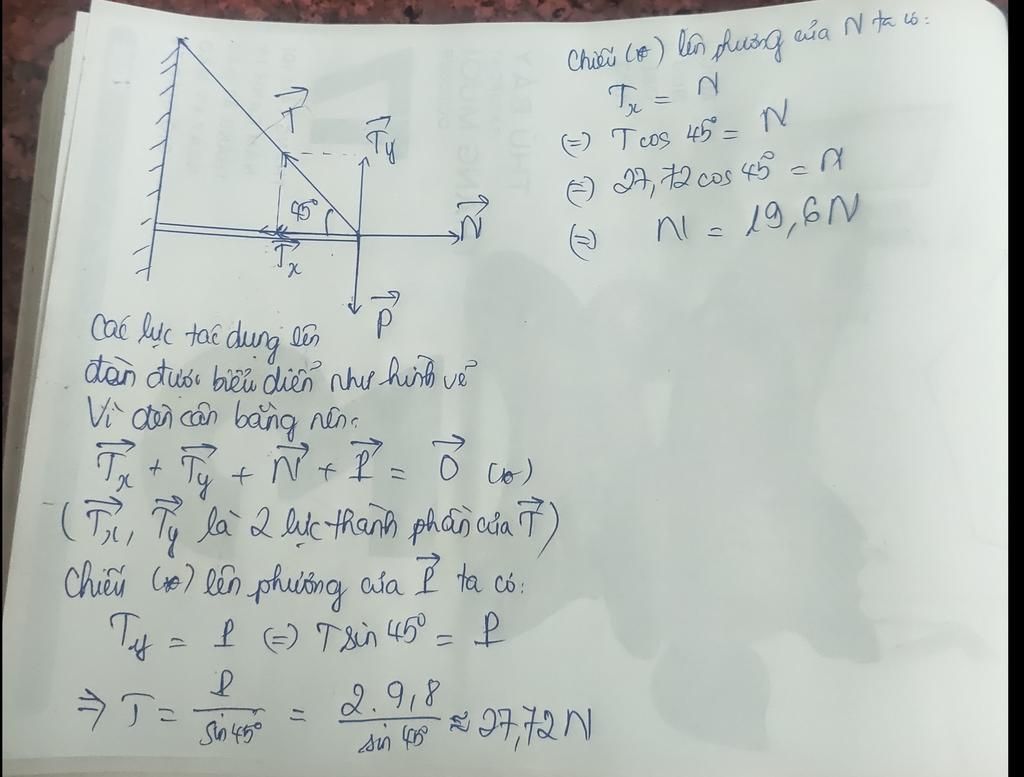 T⃗
T⃗y
45°
N⃗
T⃗x
P⃗
Các lực tác dụng lên
đèn được biểu diễn như hình vẽ
Vì đèn cân bằng nên:
T⃗x + T⃗y + N⃗ + P⃗ = 0⃗ (*)
(T⃗x, T⃗y là 2 lực thành phần của T⃗)
Chiếu (*) lên phương của P⃗ ta có:
Ty = P (=) T sin 45° = P
⇒ T = P / sin 45° = 2.9,8 / sin 45° ≈ 27,72 N
Chiếu (*) lên phương của N ta có:
Tx = N
(=) T cos 45° = N
(=) 27,72 cos 45° = N
(=) N = 19,6 N